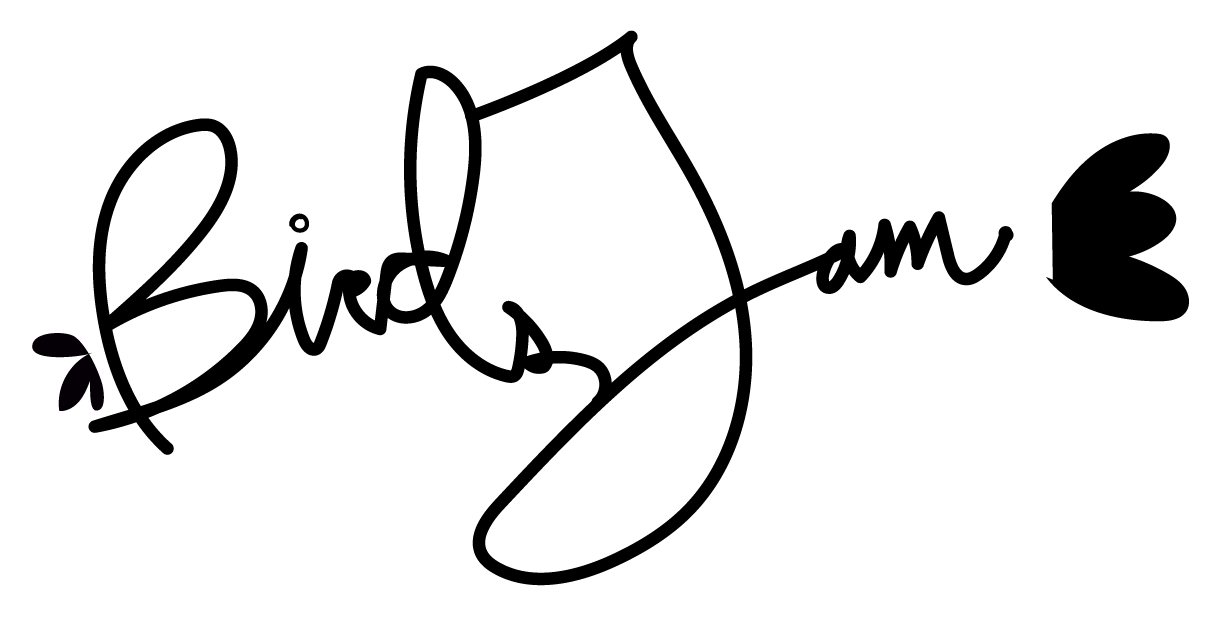 Birds Jam